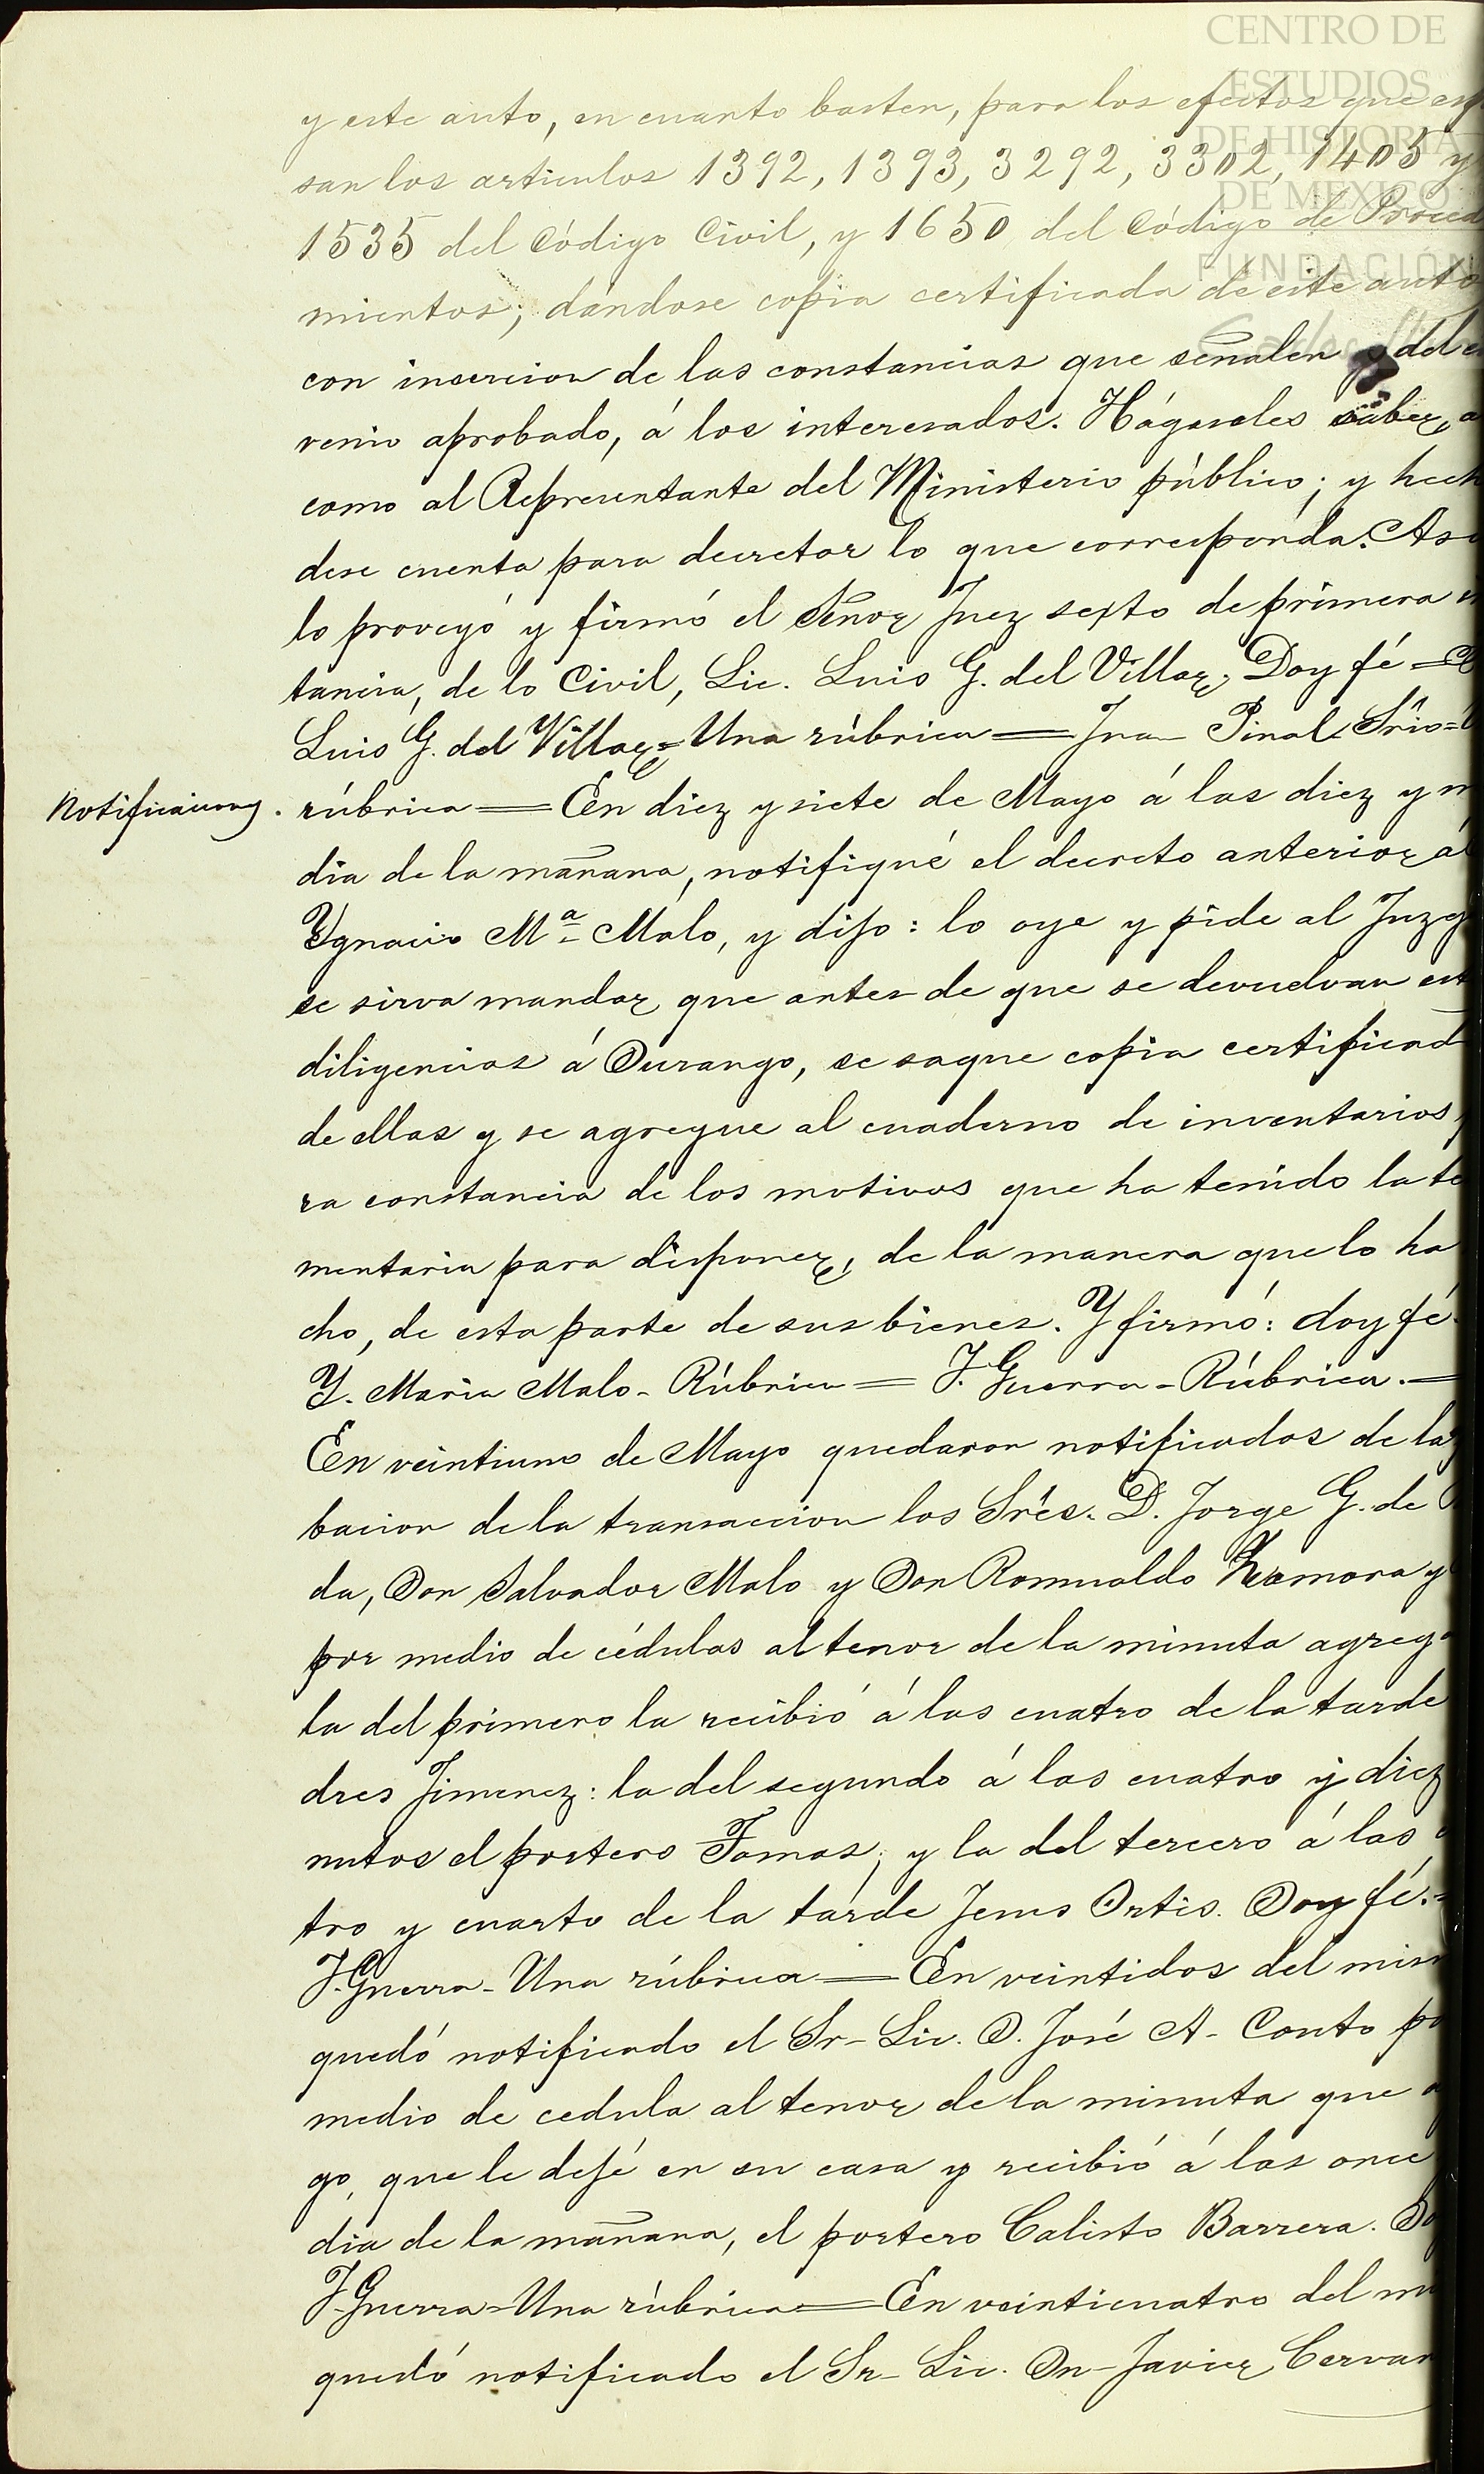 CENTRO DE
ESTUDIOS
DE HISTORIA
DE MEXICO
FUNDACIÓN
y este auto, en cuanto basten, para los efectos que
san los articulos 1392, 1393, 3292, 3302, 1405 y
1535 del Código Civil, y 1650 del Código de Proced
mientos; dándose copia certificada de este auto
con insercion de las constancias que señalen del
venio aprobado, á los interesados. Hágaseles saber,
como al Representante del Ministerio público; y hech
dese cuenta para decretar lo que corresponda. Asi
lo proveyó y firmó el Señor Juez sexto de primera
tancia, de lo Civil, Lic. Luis G. del Villar, Doy fé =
Luis G. del Villar = Una rúbrica = Jna Pinal Srio =
Notificaciones.
rúbrica = En diez y siete de Mayo á las diez y m
dia de la mañana, notifiqué el decreto anterior al
Ygnacio Mª Malo, y dijo: lo oye y pide al Juzg
se sirva mandar, que antes de que se devuelvan est
diligencias á Durango, se saque copia certificad
de ellas y se agregue al cuaderno de inventarios,
ra constancia de los motivos que ha tenido la te
mentaria para disponer, de la manera que lo ha
cho, de esta parte de sus bienes. Y firmó: doy fé.
Y. Maria Malo - Rúbrica = J. Guerra - Rúbrica. =
En veintiuno de Mayo quedaron notificados de la
bacion de la transaccion los Srés. D. Jorge G. de
da, Don Salvador Malo y Don Romualdo Zamora y
por medio de cédulas al tenor de la minuta agreg
la del primero la recibió á las cuatro de la tarde
dres Jimenez: la del segundo á las cuatro y diez
nutos el portero Tomas; y la del tercero á las
tro y cuarto de la tarde Jesus Ortis. Doy fé. =
J. Guerra - Una rúbrica = En veintidos del mism
quedó notificado el Sr. Lic. D. José A. Conto po
medio de cedula al tenor de la minuta que a
go, que le dejé en su casa y recibió á las once
dia de la mañana, el portero Calisto Barrera. Do
J. Guerra = Una rúbrica = En veinticuatro del m
quedó notificado el Sr. Lic. Dn Javier Cervan